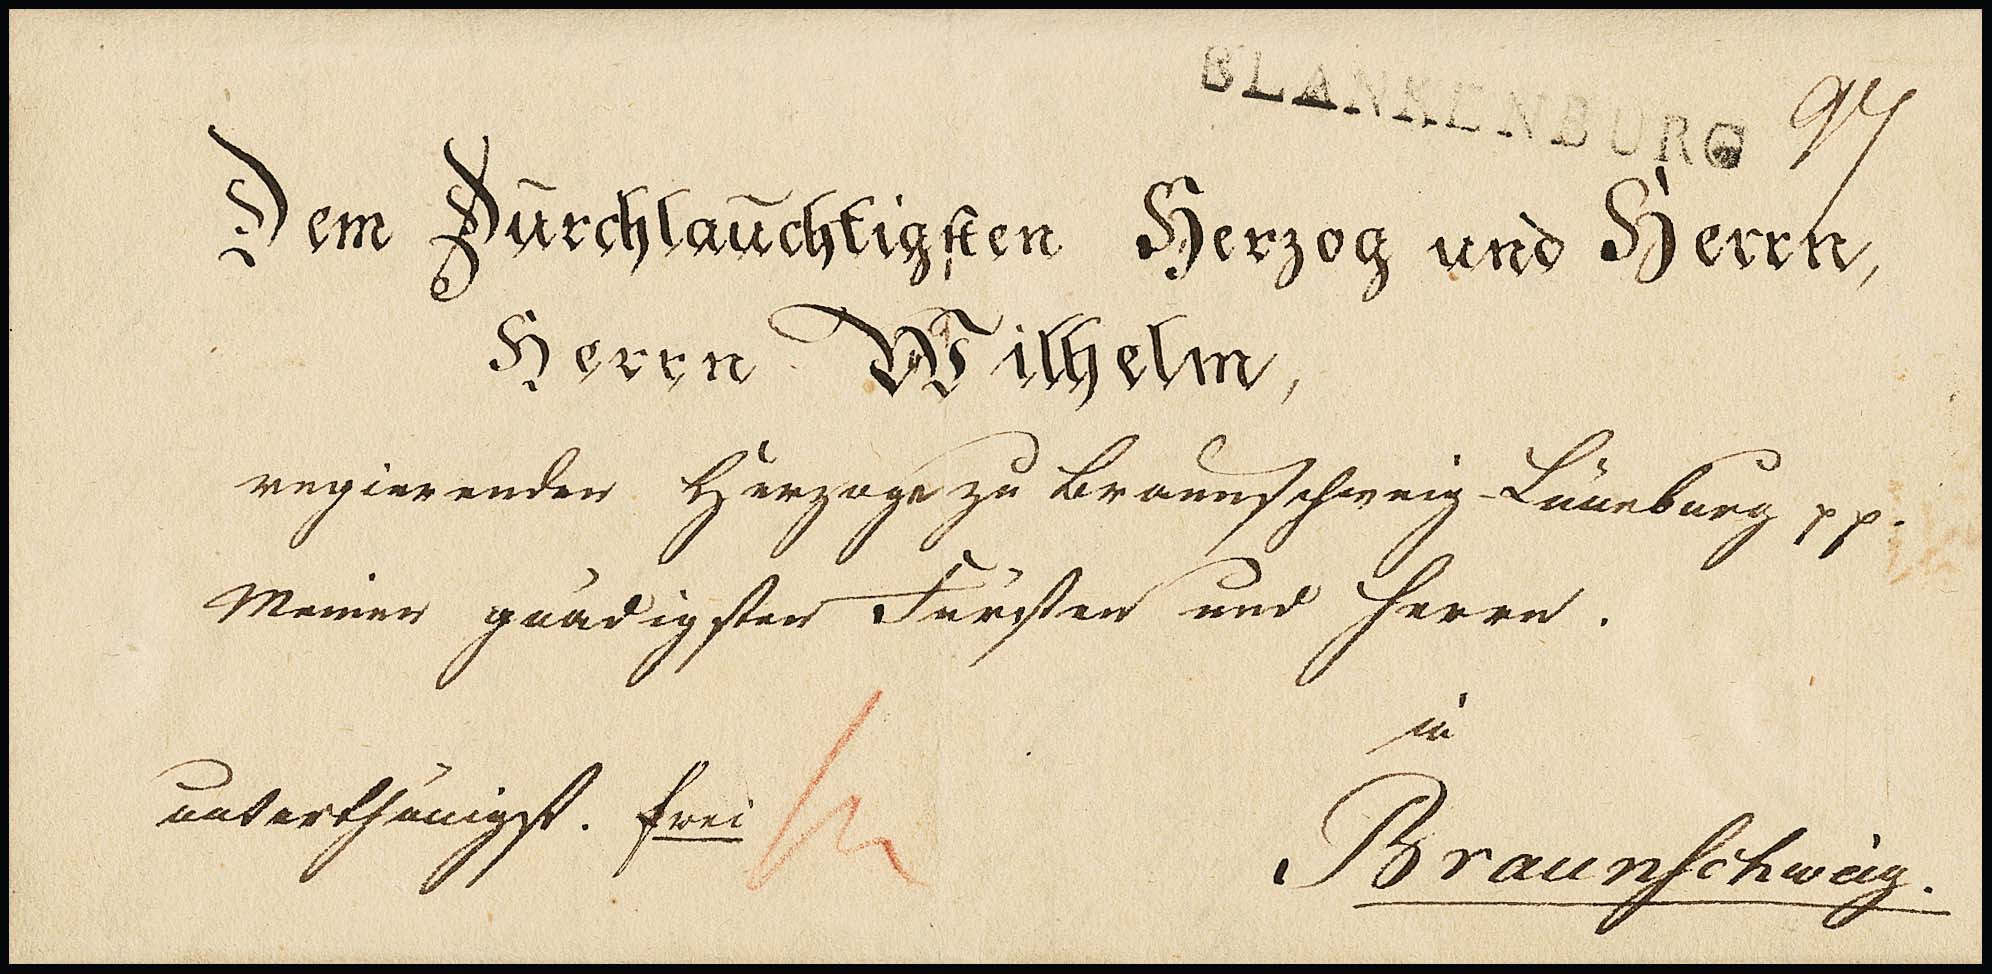 BLANKENBURG
Dem Durchlauchtigsten Herzog und Herrn,
Herrn Wilhelm,
regierenden Herzoge zu Braunschweig-Lüneburg pp.
Meinen gnädigsten Fürsten und Herrn.
in
unterthänigst. frei
Braunschweig.